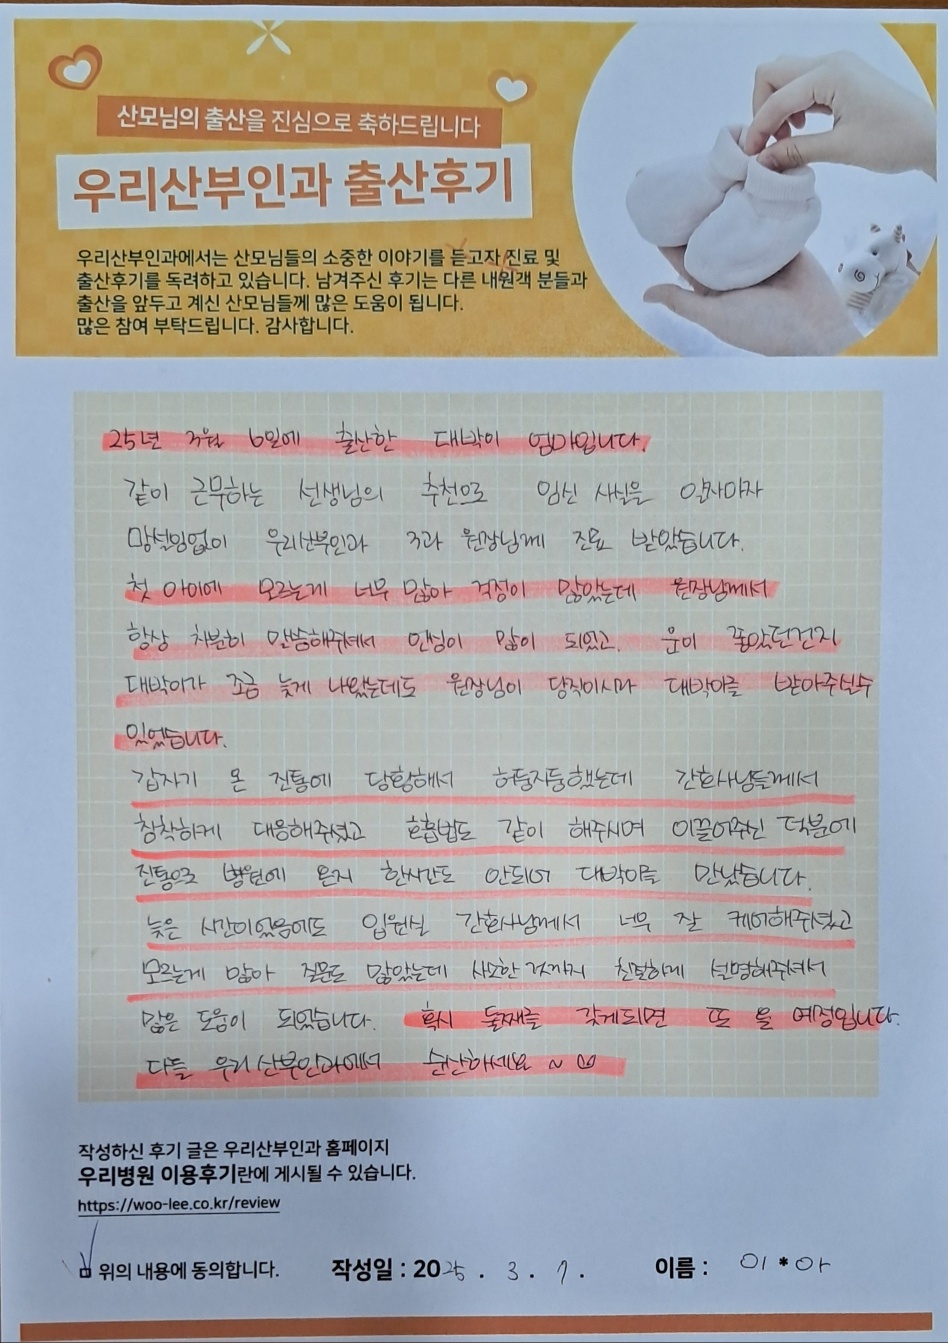 산모님의 출산을 진심으로 축하드립니다
우리산부인과 출산후기
우리산부인과에서는 산모님들의 소중한 이야기를 듣고자 진료 및
출산후기를 독려하고 있습니다. 남겨주신 후기는 다른 내원객 분들과
출산을 앞두고 계신 산모님들께 많은 도움이 됩니다.
많은 참여 부탁드립니다. 감사합니다.
25년 3월 6일에 출산한 대박이 엄마입니다.
같이 근무하는 선생님의 추천으로 임신 사실을 알자마자
망설임없이 우리산부인과 3과 원장님께 진료 받았습니다.
첫 아이에 모르는게 너무 많아 걱정이 많았는데 원장님께서
항상 차분히 말씀해주셔서 안심이 많이 되었고, 운이 좋았던건지
대박이가 조금 늦게 나왔는데도 원장님이 당직이시라 대박이를 받아주실수
있었습니다.
갑자기 온 진통에 당황해서 허둥지둥했는데 간호사님들께서
침착하게 대응해주셨고 호흡법도 같이 해주시며 이끌어주신 덕분에
진통으로 병원에 온지 한시간도 안되어 대박이를 만났습니다.
늦은 시간이었음에도 입원실 간호사님께서 너무 잘 케어해주셨고
모르는게 많아 질문도 많았는데 사소한 것까지 친절하게 설명해주셔서
많은 도움이 되었습니다. 혹시 둘째를 갖게되면 또 올 예정입니다.
다들 우리산부인과에서 순산하세요~
작성하신 후기 글은 우리산부인과 홈페이지
우리병원 이용후기란에 게시될 수 있습니다.
https://woo-lee.co.kr/review
위의 내용에 동의합니다. 작성일 : 2025 . 3 . 7 . 이름 : 이*아